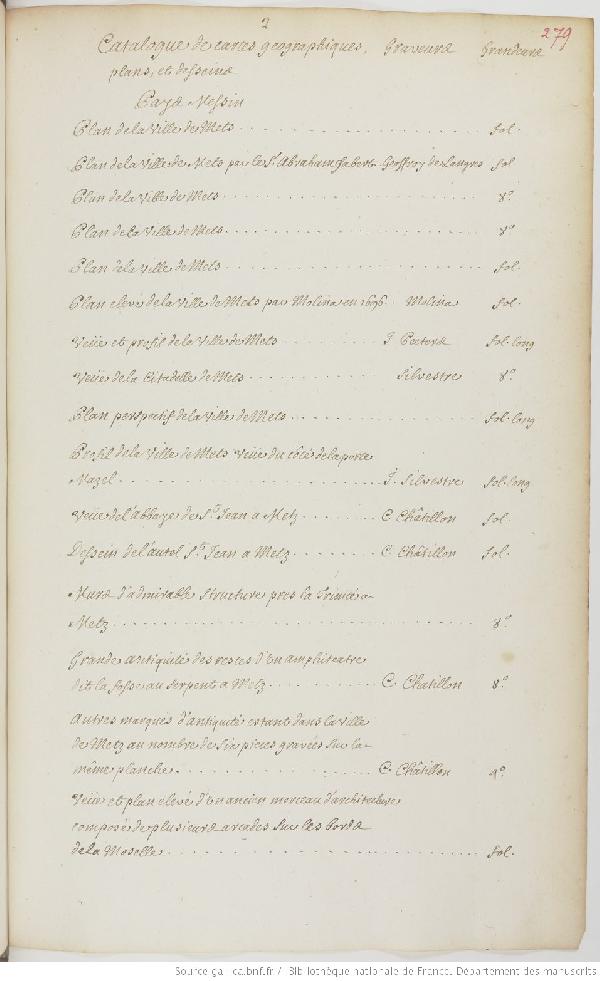 2
279
Catalogue de cartes geographiques, Graveurs Grandeurs
plans, et desseins
Pays Messin
Plan de la Ville de Mets . . . . . fol.
Plan de la Ville de Mets par le Sr. Abraham fabert. Geoffroy de Langres fol
Plan de la Ville de Mets . . . . . 8o.
Plan de la Ville de Mets . . . . . 8o.
Plan de la Ville de Mets . . . . . fol.
Plan elevé de la Ville de Mets par Molina en 1696. Molina fol.
Veüe et profil de la Ville de Mets . . . . . J Peeters fol. long
Veüe de la Citadelle de Mets . . . . . Silvestre 8o.
Plan perspectif de la Ville de Mets . . . . . fol. long
Profil de la Ville de Mets Veüe du côté de la porte
Mazel . . . . . J. Silvestre fol. long
Veüe de l'abbaye de St. Jean a Metz . . . . . C Châtillon fol.
Dessein de l'autel St. Jean a Metz . . . . . C Châtillon fol.
Murs d'admirable structure pres la a
Metz . . . . . 8o.
Grande antiquité des restes d'un amphiteatre
dit la fosse au serpent a Metz . . . . . C Chatillon 8o.
Autres marques d'antiquité estant dans la Ville
de Metz au nombre de six pieces gravées sur la
même planche . . . . . C Châtillon 4o.
Veüe et plan elevé d'un ancien morceau d'architecture
composé de plusieurs arcades sur les bords
de la Moselle . . . . . fol.
Source gallica.bnf.fr / Bibliothèque nationale de France. Département des manuscrits.